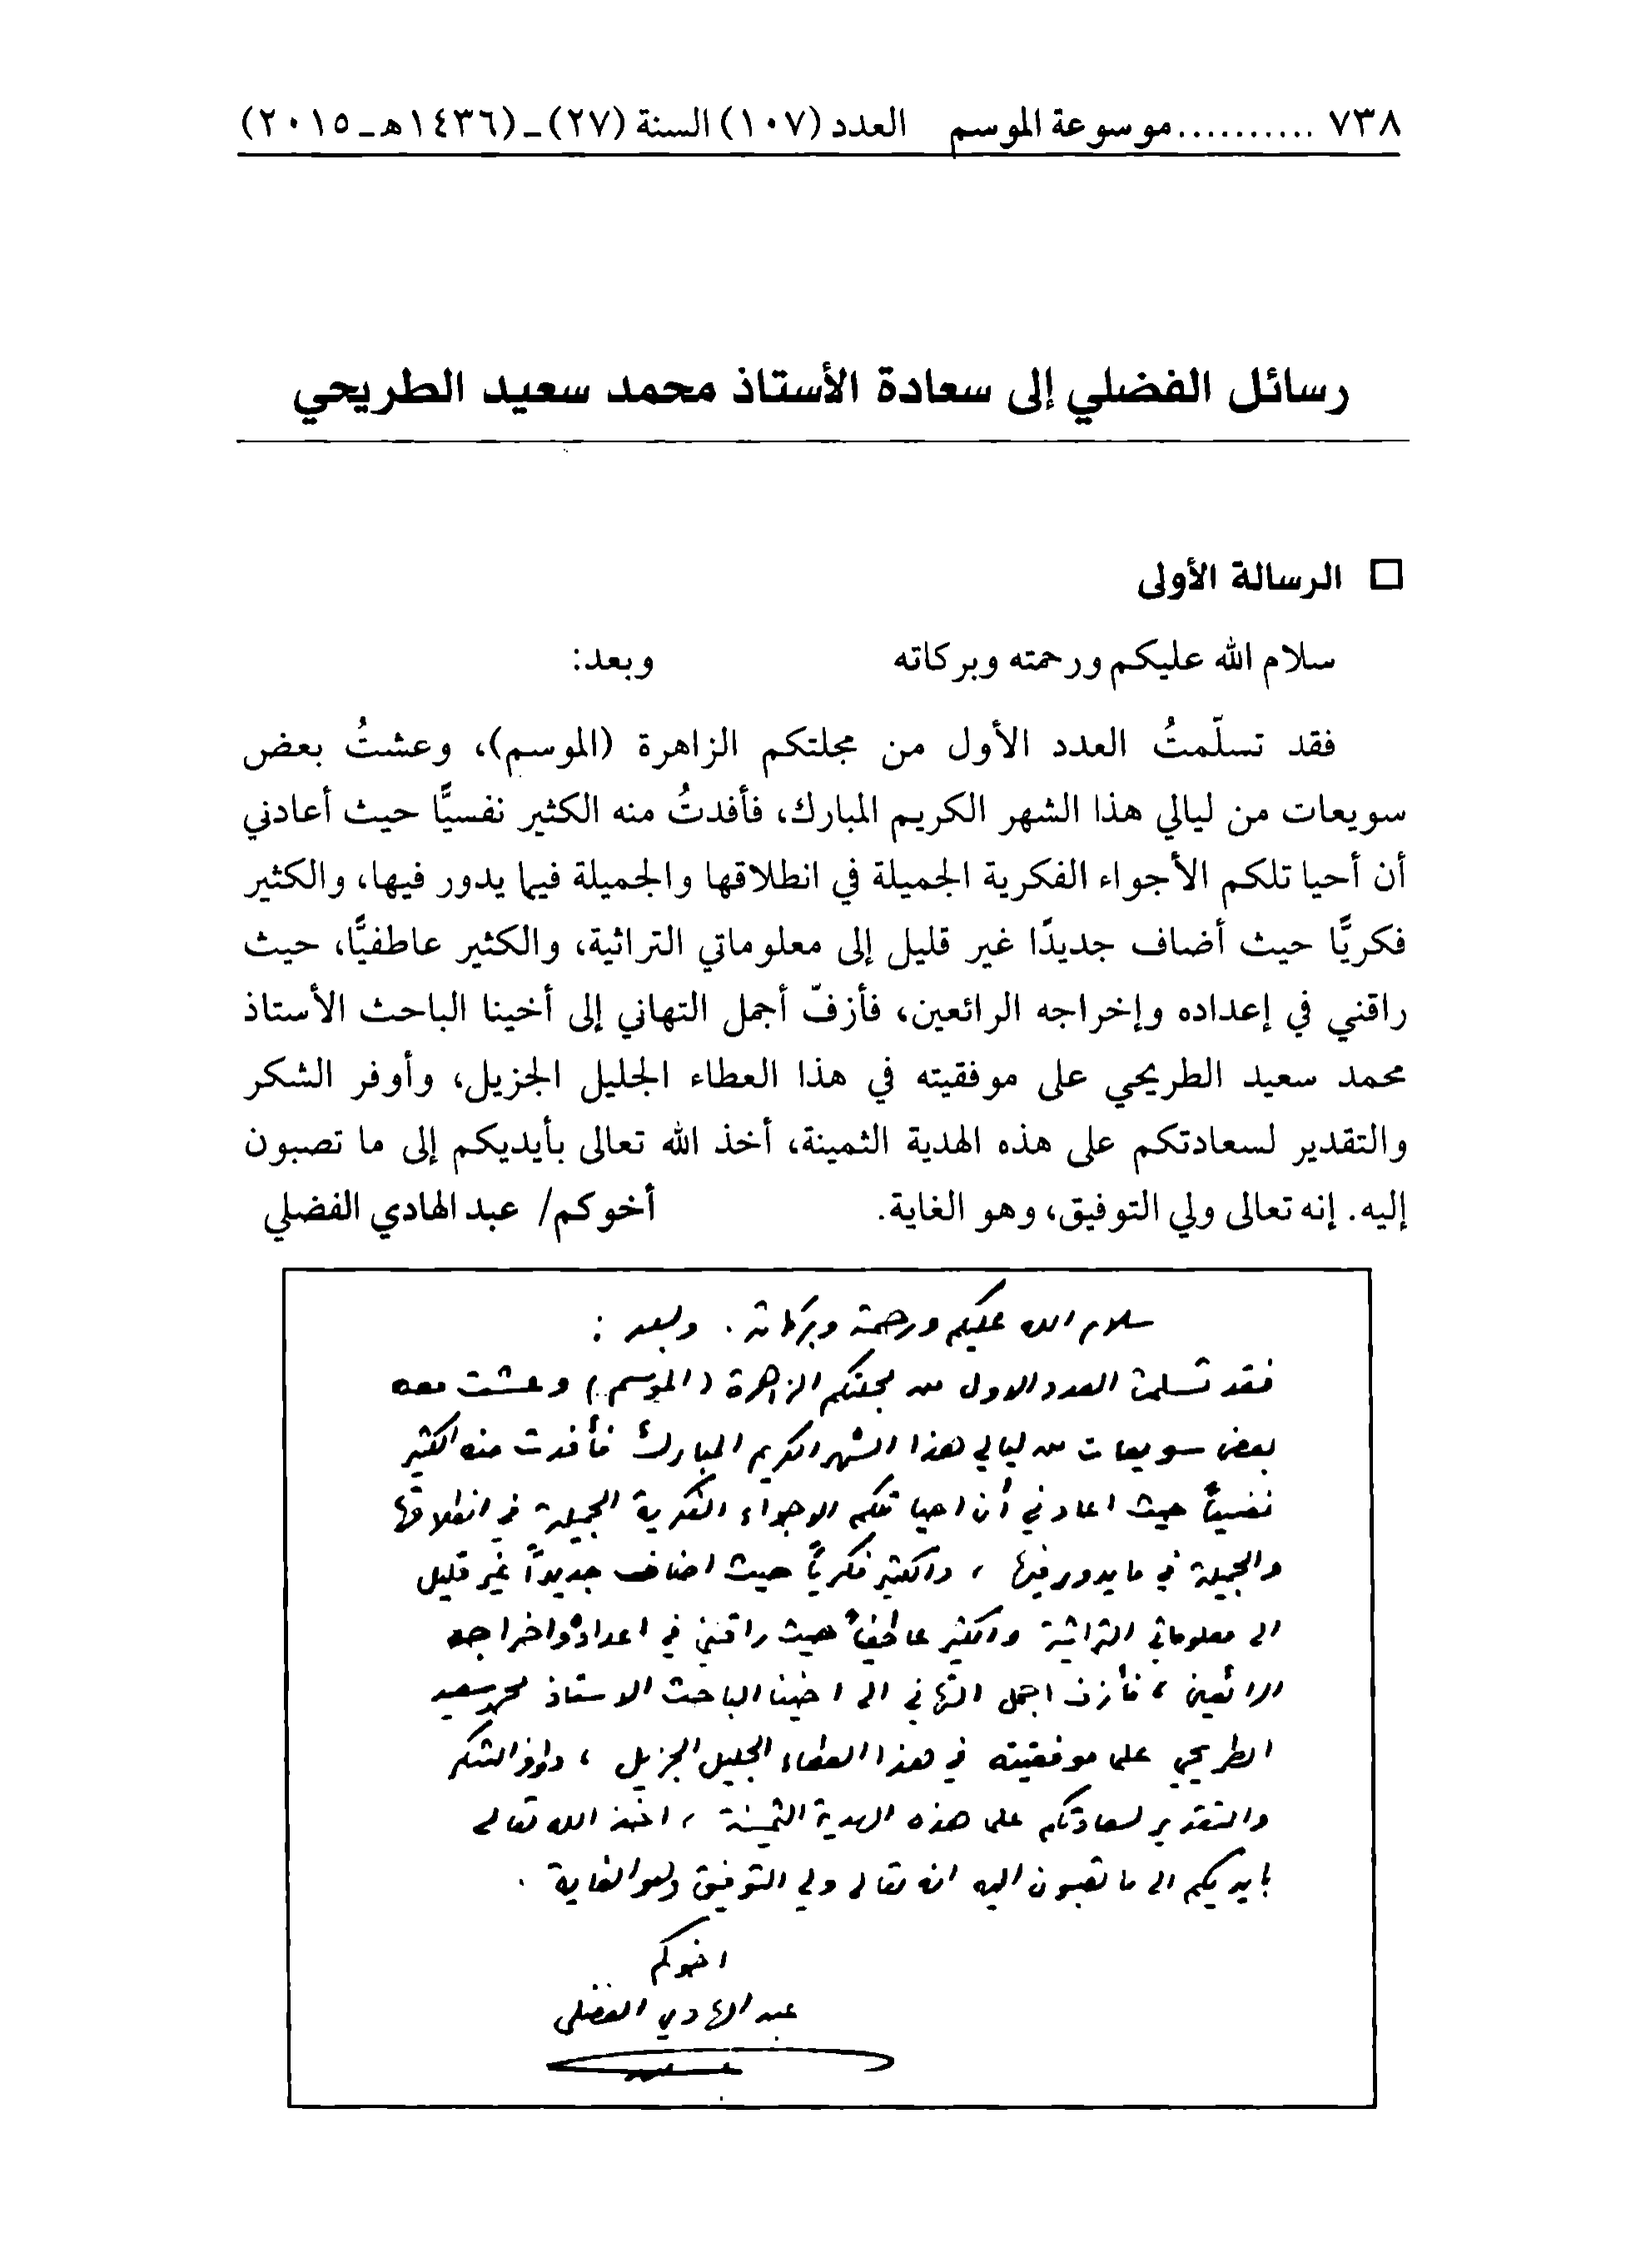 ٧٣٨ ..........موسوعة الموسم العدد (١٠٧) السنة (٢٧) ـ (١٤٣٦هـ ـ ٢٠١٥)
رسائل الفضلي إلى سعادة الأستاذ محمد سعيد الطريحي
□ الرسالة الأولى
سلام الله عليكم ورحمته وبركاته وبعد:
فقد تسلّمتُ العدد الأول من مجلتكم الزاهرة (الموسم)، وعشتُ بعض
سويعات من ليالي هذا الشهر الكريم المبارك، فأفدتُ منه الكثير نفسيًّا حيث أعادني
أن أحيا تلكم الأجواء الفكرية الجميلة في انطلاقها والجميلة فيما يدور فيها، والكثير
فكريًّا حيث أضاف جديدًا غير قليل إلى معلوماتي التراثية، والكثير عاطفيًّا، حيث
راقني في إعداده وإخراجه الرائعين، فأزفّ أجمل التهاني إلى أخينا الباحث الأستاذ
محمد سعيد الطريحي على موفقيته في هذا العطاء الجليل الجزيل، وأوفر الشكر
والتقدير لسعادتكم على هذه الهدية الثمينة، أخذ الله تعالى بأيديكم إلى ما تصبون
إليه. إنه تعالى ولي التوفيق، وهو الغاية. أخوكم/ عبد الهادي الفضلي
سلام الله عليكم ورحمته وبركاته. وبعد:
فقد تسلمت العدد الاول من مجلتكم الزاهرة (الموسم) وعشت معه
بعض سويعات من ليالي هذا الشهر الكريم المبارك فأفدت منه الكثير
نفسياً حيث اعادني أن احيا تلكم الاجواء الفكرية الجميلة في انطلاقها
والجميلة في ما يدور فيها، والكثير فكرياً حيث اضاف جديداً غير قليل
الى معلوماتي التراثية والكثير عاطفياً حيث راقني في اعداده واخراجه
الرائعين، فأزف اجمل التهاني الى اخينا الباحث الاستاذ محمد سعيد
الطريحي على موفقيته في هذا العطاء الجليل الجزيل، واوفر الشكر
والتقدير لسعادتكم على هذه الهدية الثمينة، اخذ الله تعالى
بايديكم الى ما تصبون اليه انه تعالى ولي التوفيق وهو الغاية.
اخوكم
عبد الهادي الفضلي